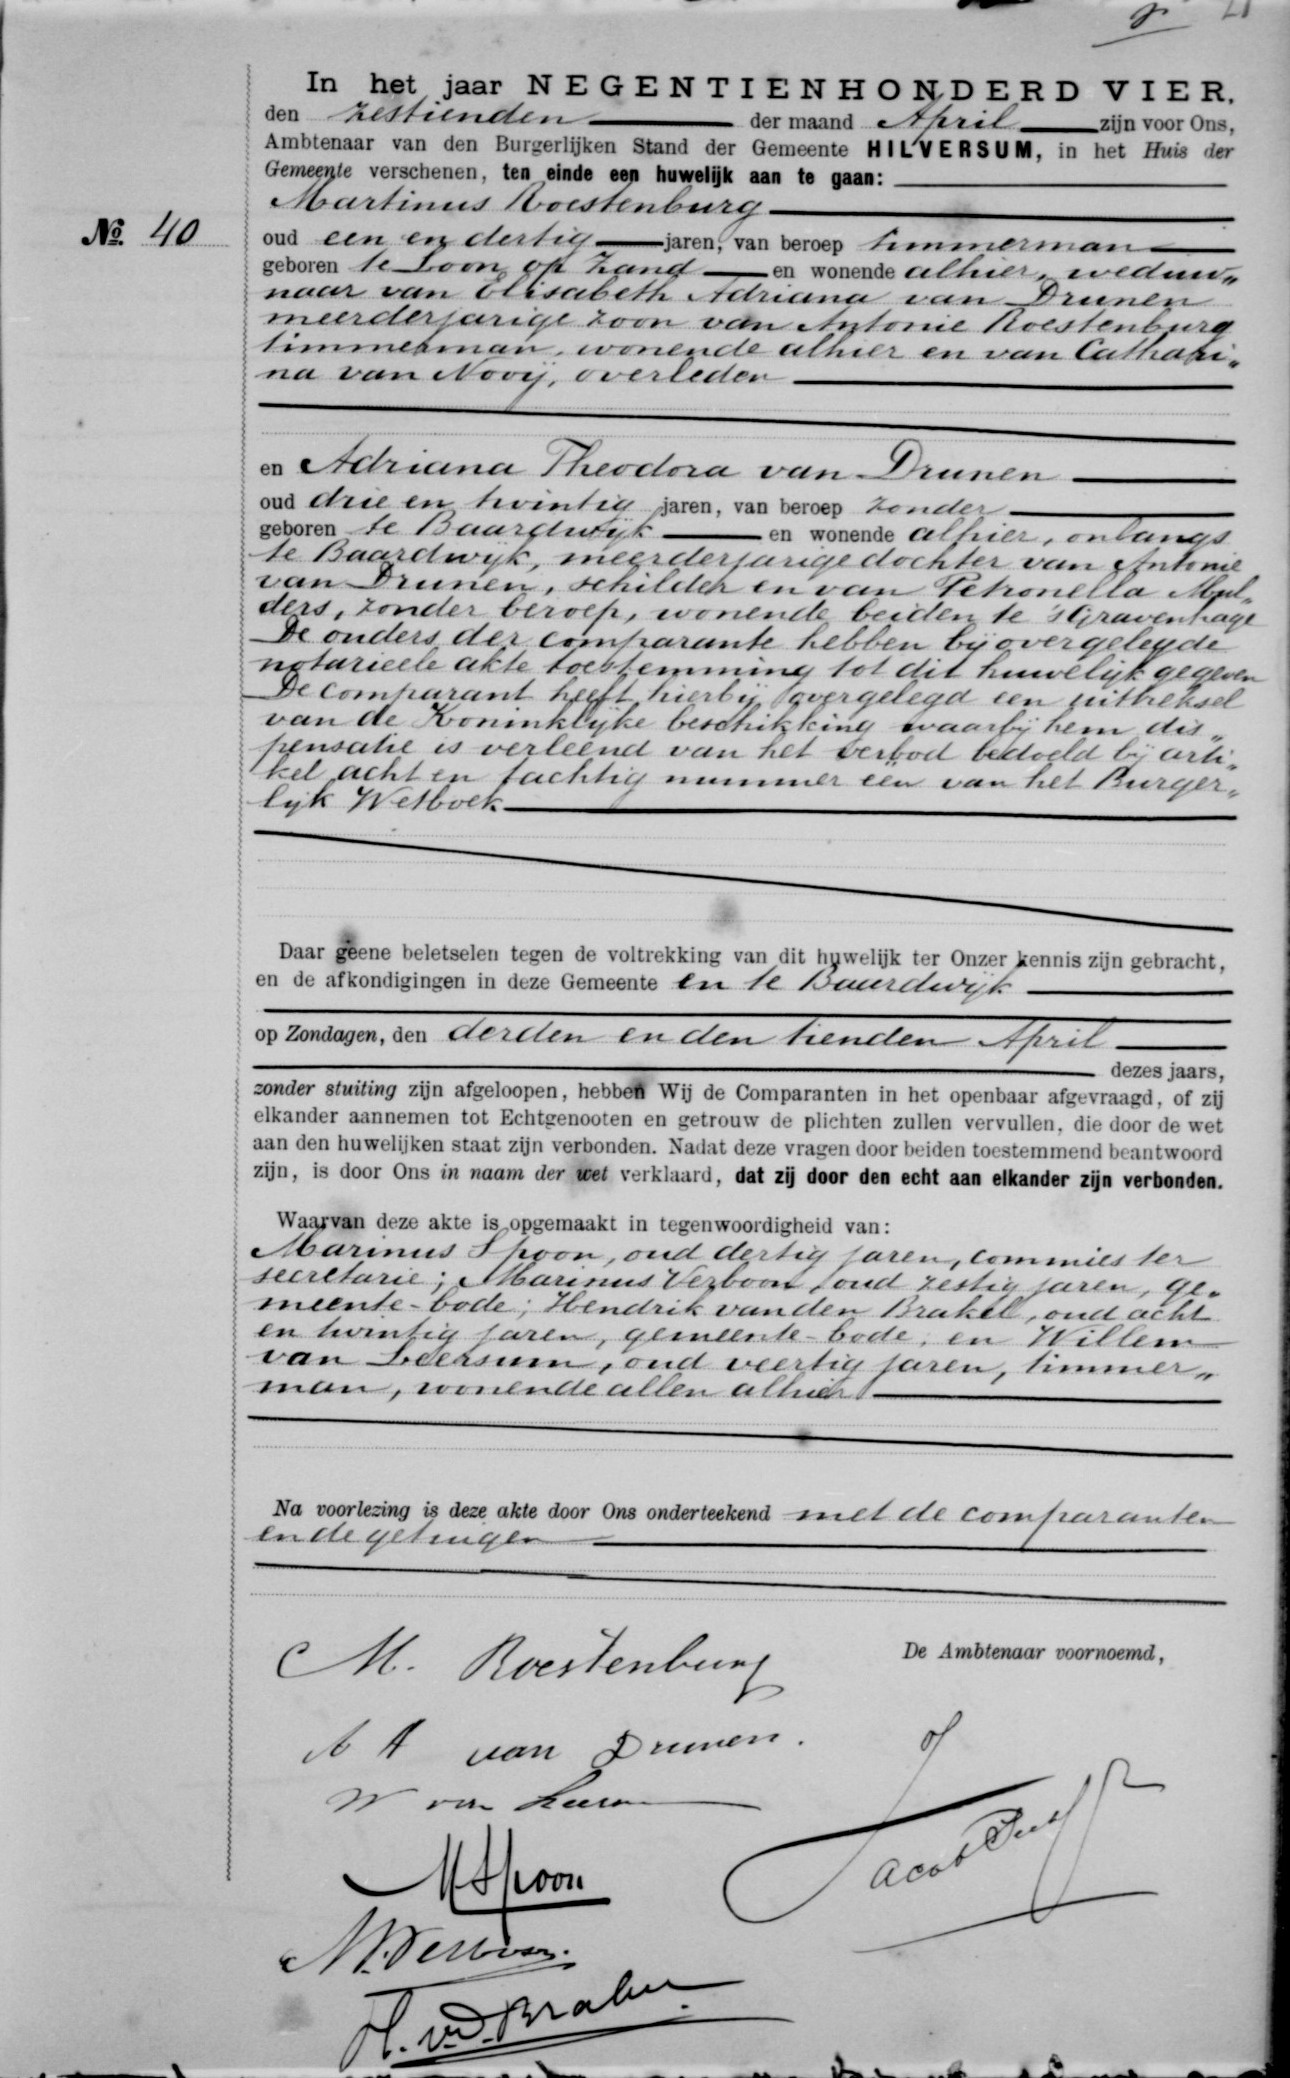 In het jaar NEGENTIENHONDERD VIER,
den zestienden der maand April zijn voor Ons,
Ambtenaar van den Burgerlijken Stand der Gemeente HILVERSUM, in het Huis der
Gemeente verschenen, ten einde een huwelijk aan te gaan:
Martinus Roestenburg
No. 40
oud een en dertig jaren, van beroep timmerman
geboren te Loon op Zand en wonende alhier, weduw„
naar van Elisabeth Adriana van Drunen
meerderjarige zoon van Antonie Roestenburg
timmerman, wonende alhier en van Cathari„
na van Nooij, overleden
en Adriana Theodora van Drunen
oud drie en twintig jaren, van beroep zonder
geboren te Baardwijk en wonende alhier, onlangs
te Baardwijk, meerderjarige dochter van Antonie
van Drunen, schilder en van Petronella Mul„
ders, zonder beroep, wonende beiden te 's Gravenhage
De ouders der comparante hebben bij overgelegde
notarieele akte toestemming tot dit huwelijk gegeven
De comparant heeft hierbij overgelegd een uittreksel
van de Koninklijke beschikking waarbij hem dis„
pensatie is verleend van het verbod bedoeld bij arti„
kel acht en tachtig nummer een van het Burger„
lijk Wetboek
Daar geene beletselen tegen de voltrekking van dit huwelijk ter Onzer kennis zijn gebracht,
en de afkondigingen in deze Gemeente en te Baardwijk
op Zondagen, den derden en den tienden April
dezes jaars,
zonder stuiting zijn afgeloopen, hebben Wij de Comparanten in het openbaar afgevraagd, of zij
elkander aannemen tot Echtgenooten en getrouw de plichten zullen vervullen, die door de wet
aan den huwelijken staat zijn verbonden. Nadat deze vragen door beiden toestemmend beantwoord
zijn, is door Ons in naam der wet verklaard, dat zij door den echt aan elkander zijn verbonden.
Waarvan deze akte is opgemaakt in tegenwoordigheid van:
Marinus Spoon, oud dertig jaren, commies ter
secretarie; Marinus Verboon, oud zestig jaren, ge„
meente-bode; Hendrik van den Brakel, oud acht
en twintig jaren, gemeente-bode; en Willem
van Leersum, oud veertig jaren, timmer„
man, wonende allen alhier
Na voorlezing is deze akte door Ons onderteekend met de comparanten
en de getuigen
M. Roestenburg
De Ambtenaar voornoemd,
van Drunen.
W van
Jacob
M Spoon
M. Verboon.
H. v. d. Brakel